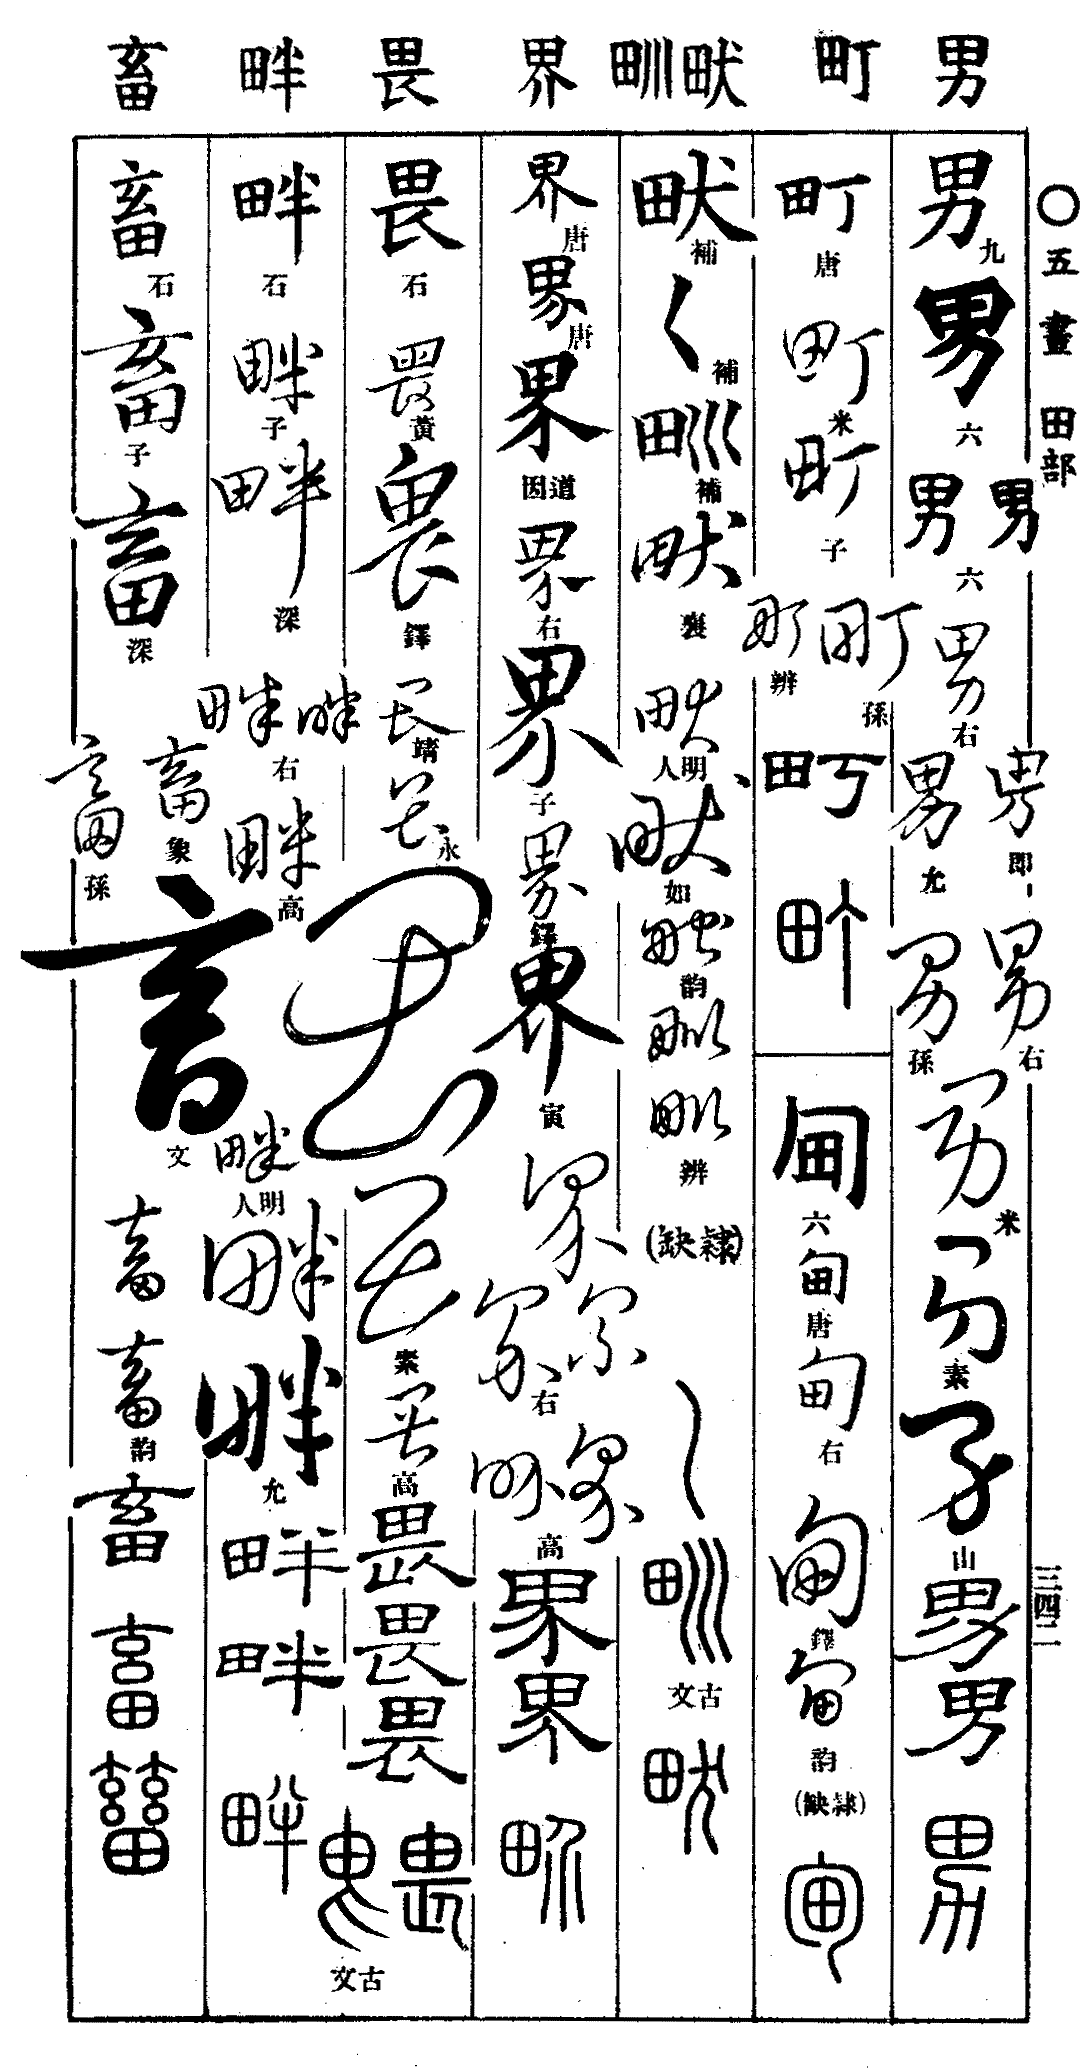 男 町 畎 甽 界 畏 畔 畜
〇五畫 田部
三四二
男 九
男 六
男 男 六
男 右
男 男 即 允
男 男 右 孫
男 米
男 素
男 山
男
男
男
町 唐
町 米
町 子
町 町 孫 辨
町
町
甸 六
甸 唐
甸 右
甸 鐸
甸 韵
(隸缺)
甸
畎 補
く 補
甽 補
畎 襄
畎 明人
畎 如
畎 韵
甽
甽 辨
(隸缺)
く
甽 古文
畎
界 唐
界 唐
界 道因
界 右
界 子
界 鐸
界 寅
界
界 界 右
界 界 高
界
界
界
畏 石
畏 黃
畏 鐸
畏 靖
畏 永
畏
畏 素
畏 高
畏
畏
畏
畏 畏 古文
畔 石
畔 子
畔 深
畔 畔 右
畔 高
畔 明人
畔
畔 允
畔
畔
畔
畜 石
畜 子
畜 深
畜 畜 象 孫
畜 文
畜
畜 韵
畜
畜
畜